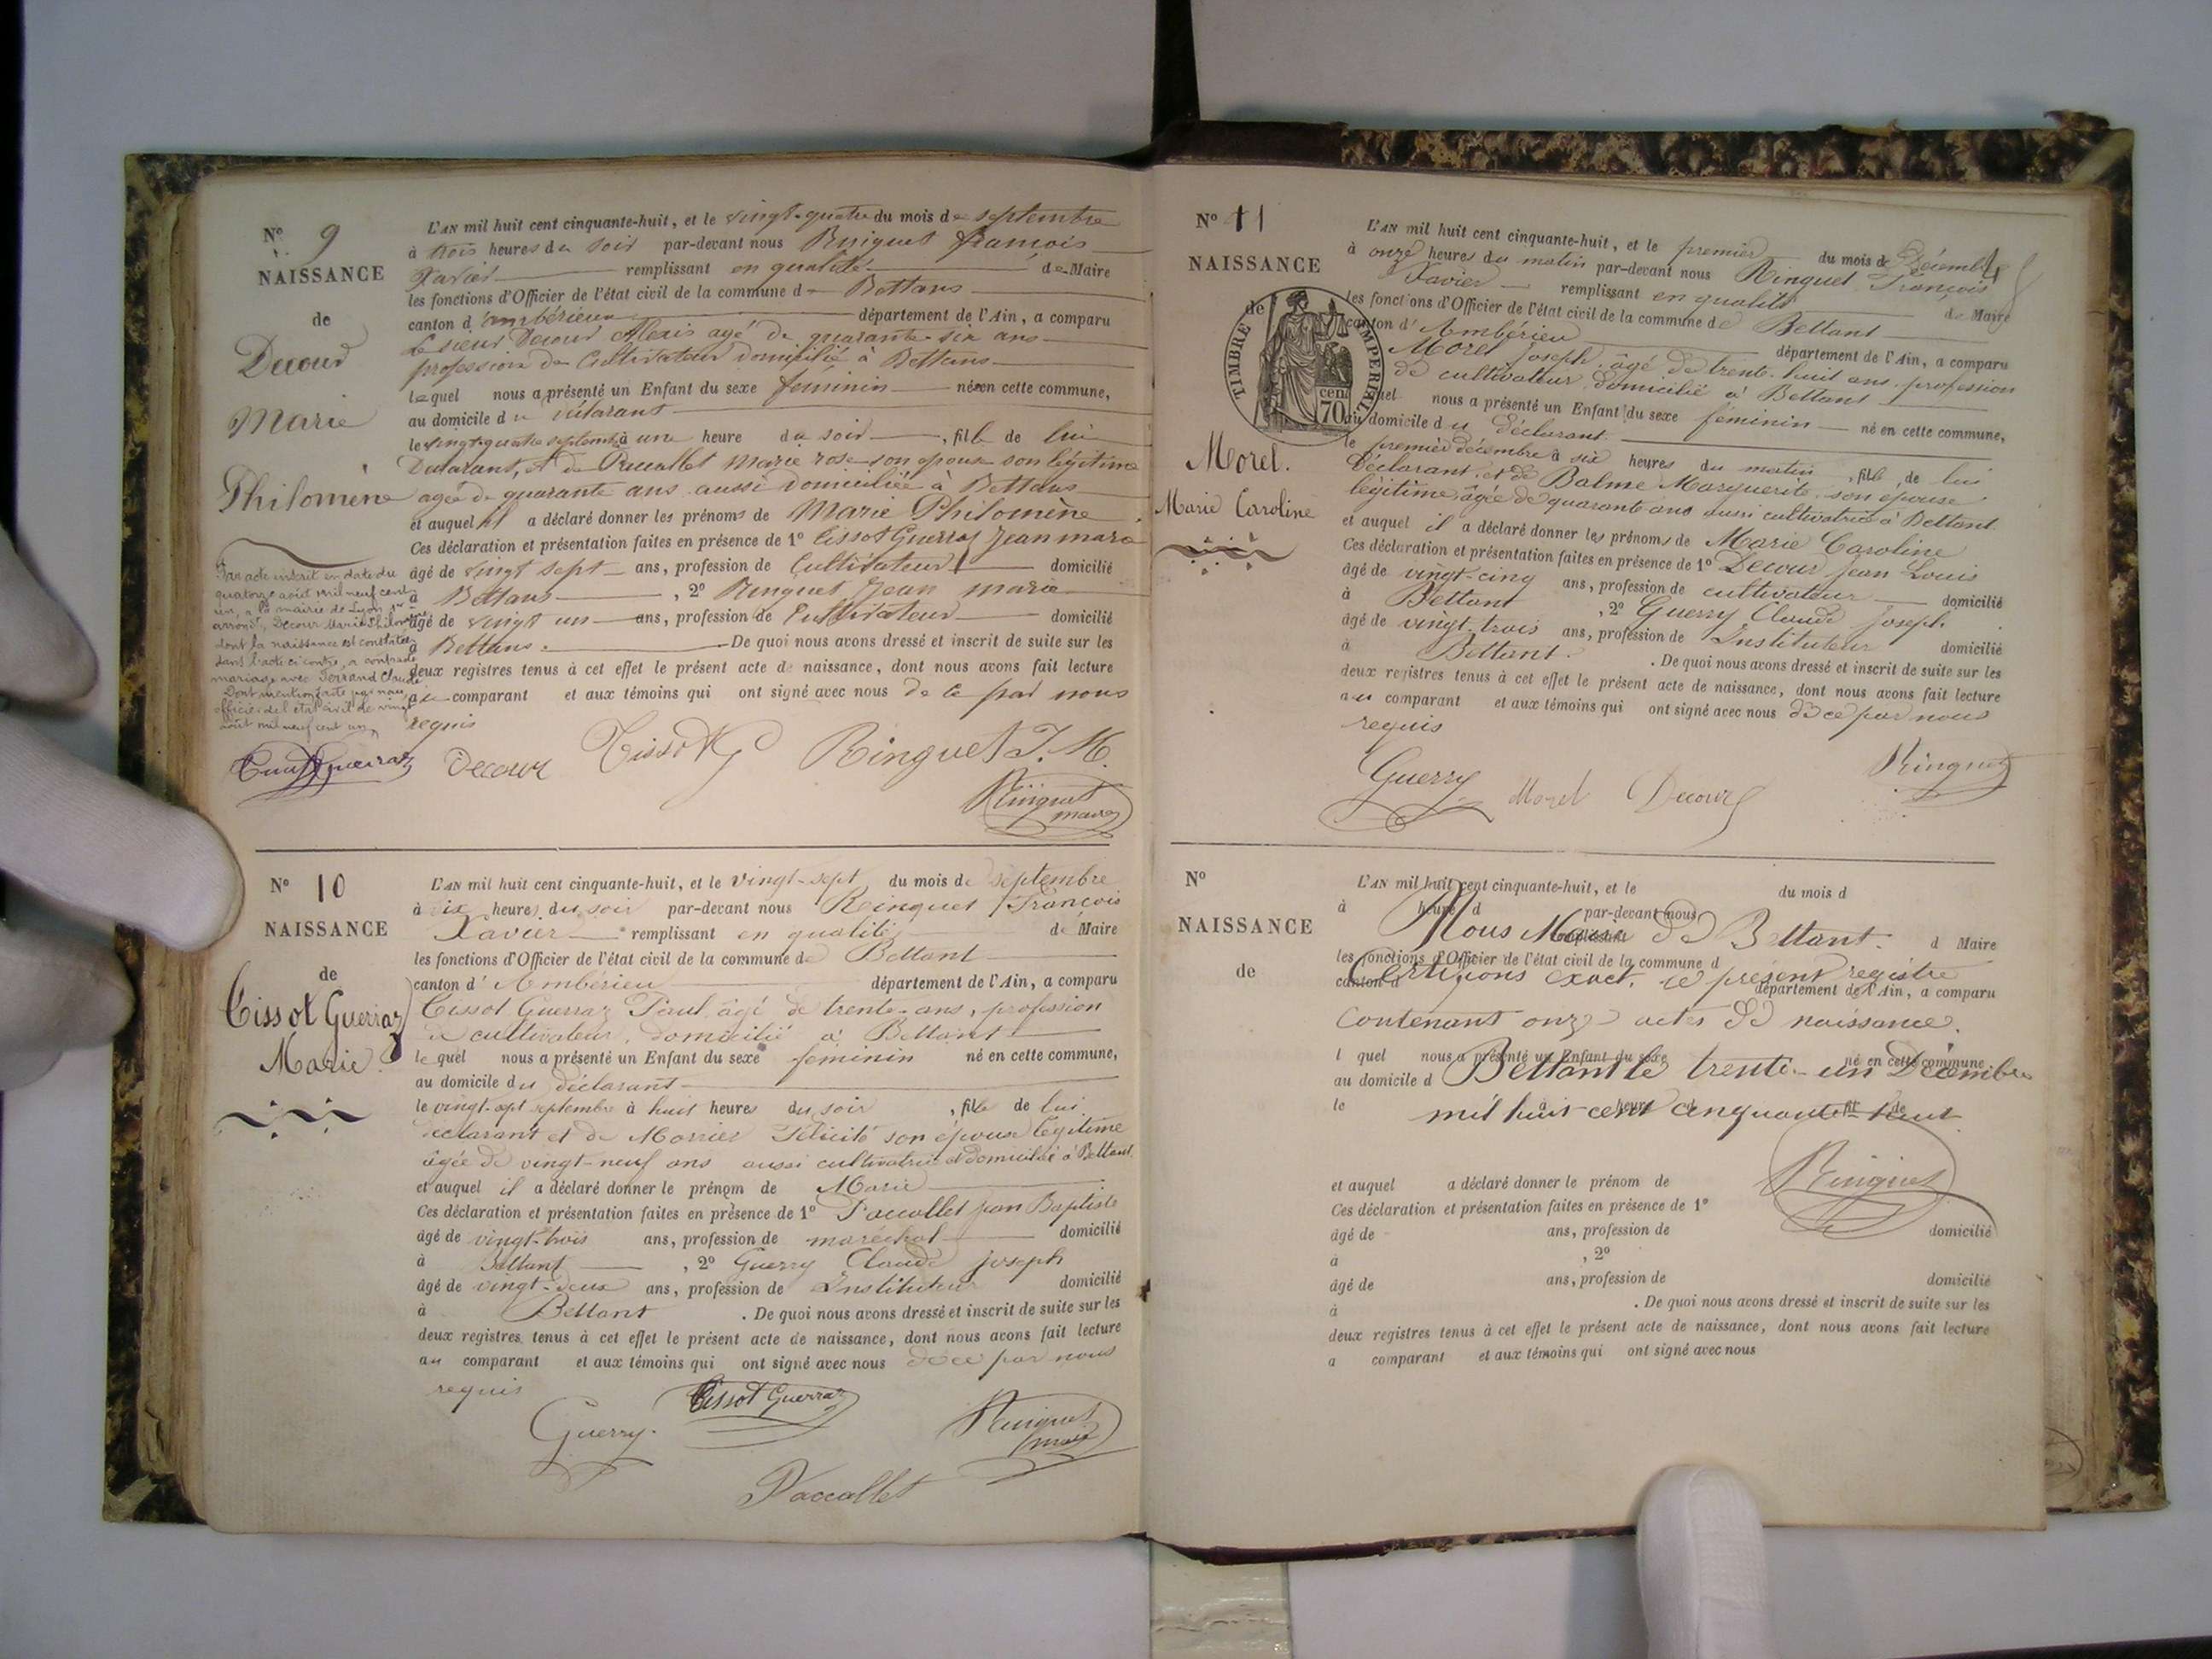 N° 9
NAISSANCE
de
Decour
Marie
Philomène
L'AN mil huit cent cinquante-huit, et le vingt-quatre du mois de septembre
à trois heures du soir par-devant nous Ringuet françois
Xavier remplissant en qualité de Maire
les fonctions d'Officier de l'état civil de la commune d Bettans
canton d'ambérieux département de l'Ain, a comparu
Le sieur Decour Alexis agé de quarante six ans
profession de Cultivateur domicilié à Bettans
lequel nous a présenté un Enfant du sexe feminin née en cette commune,
au domicile du déclarant
le vingt-quatre septembre à une heure du soir, fille de lui
Déclarant, et de marie rose son epouse légitime
agée de quarante ans aussi domiciliée à Bettans
et auquel il a déclaré donner les prénoms de Marie Philomène
Ces déclaration et présentation faites en présence de 1° Cissot Guerraz Jean marie
âgé de vingt sept ans, profession de Cultivateur domicilié
à Bettans, 2° Ringuet Jean marie
âgé de vingt un ans, profession de Cultivateur domicilié
à Bettans. De quoi nous avons dressé et inscrit de suite sur les
deux registres tenus à cet effet le présent acte de naissance, dont nous avons fait lecture
au comparant et aux témoins qui ont signé avec nous de ce par nous
requis
Par acte inscrit en date du
quatorze août mil neuf cent
un, à la mairie de Lyon 1er
arrondt, Decour Marie Philomène
dont la naissance est constatée
dans l'acte ci contre, a contracté
mariage avec Ferrand Claude
Dont mention faite par nous
officier de l'état civil le vingt
août mil neuf cent un
Decour Cissot G Ringuet J. M.
Ringuet
maire
N° 10
NAISSANCE
de
Cissot Guerraz
Marie.
L'AN mil huit cent cinquante-huit, et le vingt-sept du mois de septembre
à dix heures du soir par-devant nous Ringuet François
Xavier remplissant en qualité de Maire
les fonctions d'Officier de l'état civil de la commune de Bettant
canton d'Ambérieu département de l'Ain, a comparu
Cissot Guerraz Paul, âgé de trente ans, profession
de cultivateur, domicilié à Bettant
lequel nous a présenté un Enfant du sexe féminin né en cette commune,
au domicile du déclarant
le vingt-sept septembre à huit heures du soir, fille de lui
déclarant et de Morrier Félicité son épouse légitime
âgée de vingt-neuf ans aussi cultivatrice et domiciliée à Bettant.
et auquel il a déclaré donner le prénom de Marie
Ces déclaration et présentation faites en présence de 1° Paccallet jean Baptiste
âgé de vingt-trois ans, profession de maréchal domicilié
à Bettant, 2° Guerry Claude joseph
âgé de vingt-deux ans, profession de Instituteur domicilié
à Bettant. De quoi nous avons dressé et inscrit de suite sur les
deux registres tenus à cet effet le présent acte de naissance, dont nous avons fait lecture
au comparant et aux témoins qui ont signé avec nous de ce par nous
requis
Cissot Guerraz
Guerry. Ringuet
maire
Paccallet
N° 11
NAISSANCE
de
TIMBRE IMPERIAL
70 cent
Morel.
Marie Caroline
L'AN mil huit cent cinquante-huit, et le premier du mois de Décembre
à onze heures du matin par-devant nous Ringuet François
Xavier remplissant en qualité de Maire
les fonctions d'Officier de l'état civil de la commune de Bettant
canton d'Ambérieu département de l'Ain, a comparu
Morel joseph, âgé de trente-huit ans, profession
de cultivateur, domicilié à Bettant
lequel nous a présenté un Enfant du sexe féminin né en cette commune,
au domicile du déclarant
le premier décembre à six heures du matin, fille de lui
déclarant, et de Balme Marguerite, son épouse
légitime, âgée de quarante ans aussi cultivatrice à Bettant.
et auquel il a déclaré donner les prénoms de Marie Caroline
Ces déclaration et présentation faites en présence de 1° Decour Jean Louis
âgé de vingt-cinq ans, profession de cultivateur domicilié
à Bettant, 2° Guerry Claude joseph
âgé de vingt-trois ans, profession de Instituteur domicilié
à Bettant. De quoi nous avons dressé et inscrit de suite sur les
deux registres tenus à cet effet le présent acte de naissance, dont nous avons fait lecture
au comparant et aux témoins qui ont signé avec nous de ce par nous
requis
Guerry Morel Decour Ringuet
N°
NAISSANCE
de
L'AN mil huit cent cinquante-huit, et le du mois d
à heure d par-devant nous
Nous Maire de Bettant.
remplissant d Maire
les fonctions d'Officier de l'état civil de la commune d
Certifions exact, le présent registre
canton d département de l'Ain, a comparu
Contenant onze actes de naissance.
l quel nous a présenté un Enfant du sexe né en cette commune,
au domicile d
Bettant le trente-un Décembre
le à heure d fil de
mil huit cent cinquante-huit.
Ringuet
et auquel a déclaré donner le prénom de
Ces déclaration et présentation faites en présence de 1°
âgé de ans, profession de domicilié
à , 2°
âgé de ans, profession de domicilié
à . De quoi nous avons dressé et inscrit de suite sur les
deux registres tenus à cet effet le présent acte de naissance, dont nous avons fait lecture
a comparant et aux témoins qui ont signé avec nous